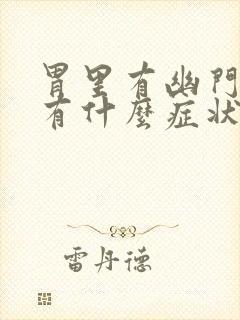 胃里有幽門
有什麼症状
雷丹德